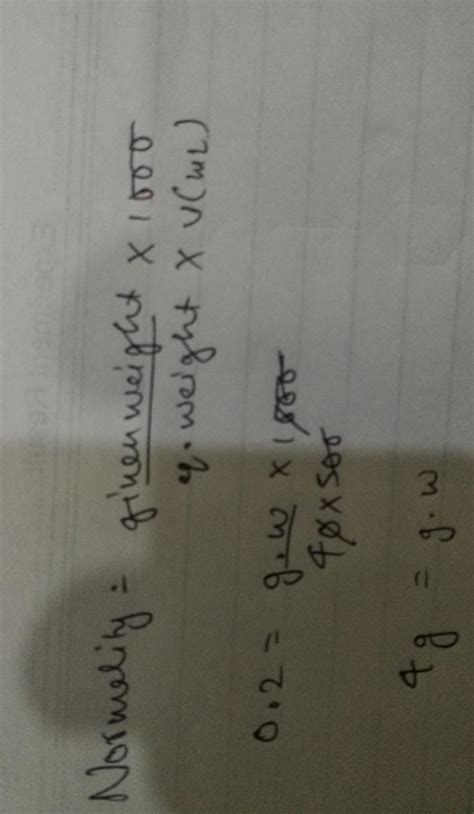 Normality = given weight × 1000
eq. weight × V(mL)
0.2 = g.w × 1000
40 × 500
4g = g.w